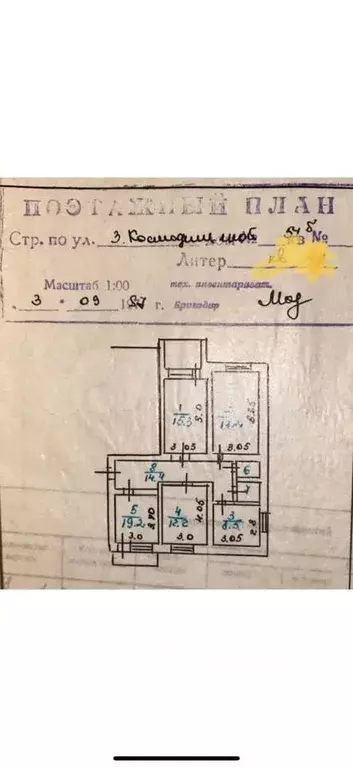 ПОЭТАЖНЫЙ ПЛАН
Стр. по ул. З. Космодемьянской 54б кв №
Литер
Масштаб 1:00 тех. инвентаризат.
3 • 09 1987 г. Бригадир
1
15.3
5.0
3.05
5.65
3.05
8
14.4
6
7
5
19.2
3.70
3.0
4
12.2
4.05
3.0
3
8.5
2.8
3.05